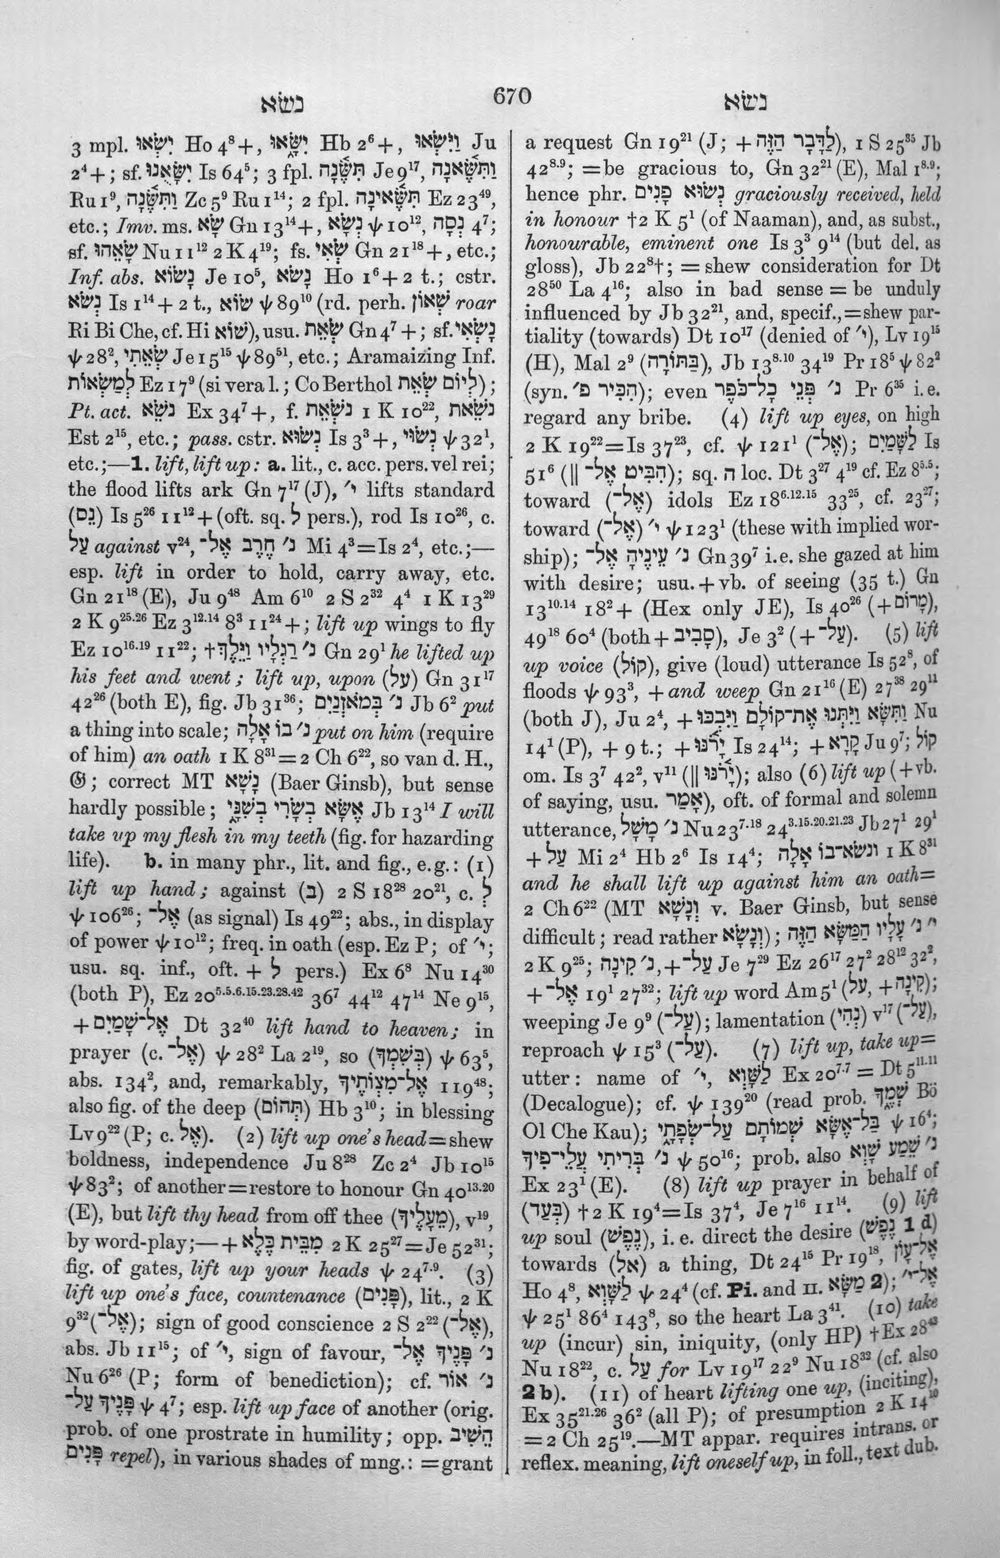 נשׂא 670 נשׂא
3 mpl. יִשְׂאוּ Ho 4⁸+, יִשָּׂאוּ Hb 2⁶+, וַיִּשְׂאוּ Ju
2⁴+; sf. Is 64⁵; 3 fpl. Je 9¹⁷,
Ru 1⁹, Zc 5⁹ Ru 1¹⁴; 2 fpl. Ez 23⁴⁹,
etc.; Imv. ms. שָׂא Gn 13¹⁴+, ψ 10¹², נְסָה 4⁷;
sf. Nu 11¹² 2 K 4¹⁹; fs. שְׂאִי Gn 21¹⁸+, etc.;
Inf. abs. נָשׂוֹא Je 10⁵, נָשֹׂא Ho 1⁶+2 t.; cstr.
נְשֹׂא Is 1¹⁴+2 t., שׂוֹא ψ 89¹⁰ (rd. perh. שְׁאוֹן roar
Ri Bi Che, cf. Hi שׂוֹא), usu. שְׂאֵת Gn 4⁷+; sf. נָשְׂאִי
ψ 28², שְׂאֵתִי Je 15¹⁵ ψ 89⁵¹, etc.; Aramaizing Inf.
לְמַשְׂאוֹת Ez 17⁹ (si vera l.; Co Berthol לְיוֹם שְׂאֵת);
Pt. act. נֹשֵׂא Ex 34⁷+, f. נֹשֵׂאת 1 K 10²², נֹשֵׂאת
Est 2¹⁵, etc.; pass. cstr. נְשׂוּא Is 3³+, נְשׂוּי ψ 32¹,
etc.;—1. lift, lift up: a. lit., c. acc. pers. vel rei;
the flood lifts ark Gn 7¹⁷ (J), י׳ lifts standard
(נֵס) Is 5²⁶ 11¹²+(oft. sq. לְ pers.), rod Is 10²⁶, c.
עַל against v²⁴, נ׳ חֶרֶב אֶל־ Mi 4³=Is 2⁴, etc.;—
esp. lift in order to hold, carry away, etc.
Gn 21¹⁸ (E), Ju 9⁴⁸ Am 6¹⁰ 2 S 2³² 4⁴ 1 K 13²⁹
2 K 9²⁵·²⁶ Ez 3¹²·¹⁴ 8³ 11²⁴+; lift up wings to fly
Ez 10¹⁶·¹⁹ 11²²; †נ׳ רַגְלָיו וַיֵּלֶךְ Gn 29¹ he lifted up
his feet and went; lift up, upon (עַל) Gn 31¹⁷
42²⁶ (both E), fig. Jb 31³⁶; נ׳ בְּמֹאזְנַיִם Jb 6² put
a thing into scale; נ׳ בוֹ אָלָה put on him (require
of him) an oath 1 K 8³¹=2 Ch 6²², so van d. H.,
𝔊; correct MT נָשָׁא (Baer Ginsb), but sense
hardly possible; אֶשָּׂא בְשָׂרִי בְשִׁנָּי Jb 13¹⁴ I will
take up my flesh in my teeth (fig. for hazarding
life). b. in many phr., lit. and fig., e.g.: (1)
lift up hand; against (בְּ) 2 S 18²⁸ 20²¹, c. לְ
ψ 106²⁶; אֶל־ (as signal) Is 49²²; abs., in display
of power ψ 10¹²; freq. in oath (esp. Ez P; of י׳;
usu. sq. inf., oft. + לְ pers.) Ex 6⁸ Nu 14³⁰
(both P), Ez 20⁵·⁵·⁶·¹⁵·²³·²⁸·⁴² 36⁷ 44¹² 47¹⁴ Ne 9¹⁵,
+אֶל־שָׁמַיִם Dt 32⁴⁰ lift hand to heaven; in
prayer (c. אֶל־) ψ 28² La 2¹⁹, so (בְּשִׁמְךָ) ψ 63⁵,
abs. 134², and, remarkably, אֶל־מִצְוֺתֶיךָ 119⁴⁸;
also fig. of the deep (תְּהוֹם) Hb 3¹⁰; in blessing
Lv 9²² (P; c. אֶל). (2) lift up one's head=shew
boldness, independence Ju 8²⁸ Zc 2⁴ Jb 10¹⁵
ψ 83²; of another=restore to honour Gn 40¹³·²⁰
(E), but lift thy head from off thee (מֵעָלֶיךָ), v¹⁹,
by word-play;—+מִבֵּית כֶּלֶא 2 K 25²⁷=Je 52³¹;
fig. of gates, lift up your heads ψ 24⁷·⁹. (3)
lift up one's face, countenance (פָּנִים), lit., 2 K
9³² (אֶל־); sign of good conscience 2 S 2²² (אֶל־),
abs. Jb 11¹⁵; of י׳, sign of favour, נ׳ פָּנֶיךָ אֶל־
Nu 6²⁶ (P; form of benediction); cf. נ׳ אוֹר
פָּנֶיךָ עַל־ ψ 4⁷; esp. lift up face of another (orig.
prob. of one prostrate in humility; opp. הֵשִׁיב
פָּנִים repel), in various shades of mng.: =grant
a request Gn 19²¹ (J; +לַדָּבָר הַזֶּה), 1 S 25³⁵ Jb
42⁸·⁹; =be gracious to, Gn 32²¹ (E), Mal 1⁸·⁹;
hence phr. נְשׂוּא פָנִים graciously received, held
in honour †2 K 5¹ (of Naaman), and, as subst.,
honourable, eminent one Is 3³ 9¹⁴ (but del. as
gloss), Jb 22⁸†; =shew consideration for Dt
28⁵⁰ La 4¹⁶; also in bad sense = be unduly
influenced by Jb 32²¹, and, specif.,=shew par-
tiality (towards) Dt 10¹⁷ (denied of י׳), Lv 19¹⁵
(H), Mal 2⁹ (בַּתּוֹרָה), Jb 13⁸·¹⁰ 34¹⁹ Pr 18⁵ ψ 82²
(syn. הִכִּיר פ׳); even נ׳ פְּנֵי כָל־כֹּפֶר Pr 6³⁵ i.e.
regard any bribe. (4) lift up eyes, on high
2 K 19²²=Is 37²³, cf. ψ 121¹ (אֶל־); לַשָּׁמַיִם Is
51⁶ (‖ הִבִּיט אֶל־); sq. ה loc. Dt 3²⁷ 4¹⁹ cf. Ez 8⁵·⁵;
toward (אֶל־) idols Ez 18⁶·¹²·¹⁵ 33²⁵, cf. 23²⁷;
toward (אֶל־) י׳ ψ 123¹ (these with implied wor-
ship); נ׳ עֵינֶיהָ אֶל־ Gn 39⁷ i.e. she gazed at him
with desire; usu. + vb. of seeing (35 t.) Gn
13¹⁰·¹⁴ 18²+ (Hex only JE), Is 40²⁶ (+מָרוֹם),
49¹⁸ 60⁴ (both + סָבִיב), Je 3² (+עַל־). (5) lift
up voice (קוֹל), give (loud) utterance Is 52⁸, of
floods ψ 93³, + and weep Gn 21¹⁶ (E) 27³⁸ 29¹¹
(both J), Ju 2⁴, +וַתִּשָּׂא וַיִּתְּנוּ אֶת־קוֹלָם וַיִּבְכּוּ Nu
14¹ (P), + 9 t.; +יָרֹנּוּ Is 24¹⁴; +קָרָא Ju 9⁷; קוֹל
om. Is 3⁷ 42², v¹¹ (‖ יָרֹנּוּ); also (6) lift up (+vb.
of saying, usu. אָמַר), oft. of formal and solemn
utterance, נ׳ מָשָׁל Nu 23⁷·¹⁸ 24³·¹⁵·²⁰·²¹·²³ Jb 27¹ 29¹
+עַל Mi 2⁴ Hb 2⁶ Is 14⁴; ונשׂא־בוֹ אָלָה 1 K 8³¹
and he shall lift up against him an oath=
2 Ch 6²² (MT וְנָשָׁא v. Baer Ginsb, but sense
difficult; read rather וְנָשָׂא); י׳ נ׳ עָלָיו הַמַּשָּׂא הַזֶּה
2 K 9²⁵; נ׳ קִינָה, +עַל־ Je 7²⁹ Ez 26¹⁷ 27² 28¹² 32²,
+אֶל־ 19¹ 27³²; lift up word Am 5¹ (עַל, +קִינָה);
weeping Je 9⁹ (עַל־); lamentation (נְהִי) v¹⁷ (עַל־),
reproach ψ 15³ (עַל־). (7) lift up, take up=
utter: name of י׳, לַשָּׁוְא Ex 20⁷·⁷ = Dt 5¹¹·¹¹
(Decalogue); cf. ψ 139²⁰ (read prob. שְׁמֶךָ Bö
Ol Che Kau); בַּל־אֶשָּׂא שְׁמוֹתָם עַל־שְׂפָתָי ψ 16⁴;
נ׳ בְּרִיתִי עֲלֵי־פִיךָ ψ 50¹⁶; prob. also נ׳ שֵׁמַע שָׁוְא
Ex 23¹ (E). (8) lift up prayer in behalf of
(בְּעַד) †2 K 19⁴=Is 37⁴, Je 7¹⁶ 11¹⁴. (9) lift
up soul (נֶפֶשׁ), i.e. direct the desire (נֶפֶשׁ 1 d)
towards (אל) a thing, Dt 24¹⁵ Pr 19¹⁸, אֶל־עָוֹן
Ho 4⁸, לַשָּׁוְא ψ 24⁴ (cf. Pi. and II. מַשָּׂא 2); אֶל־י׳
ψ 25¹ 86⁴ 143⁸, so the heart La 3⁴¹. (10) take
up (incur) sin, iniquity, (only HP) †Ex 28⁴³
Nu 18²², c. עַל for Lv 19¹⁷ 22⁹ Nu 18³² (cf. also
2 b). (11) of heart lifting one up, (inciting),
Ex 35²¹·²⁶ 36² (all P); of presumption 2 K 14¹⁰
=2 Ch 25¹⁹.—MT appar. requires intrans. or
reflex. meaning, lift oneself up, in foll., text dub.